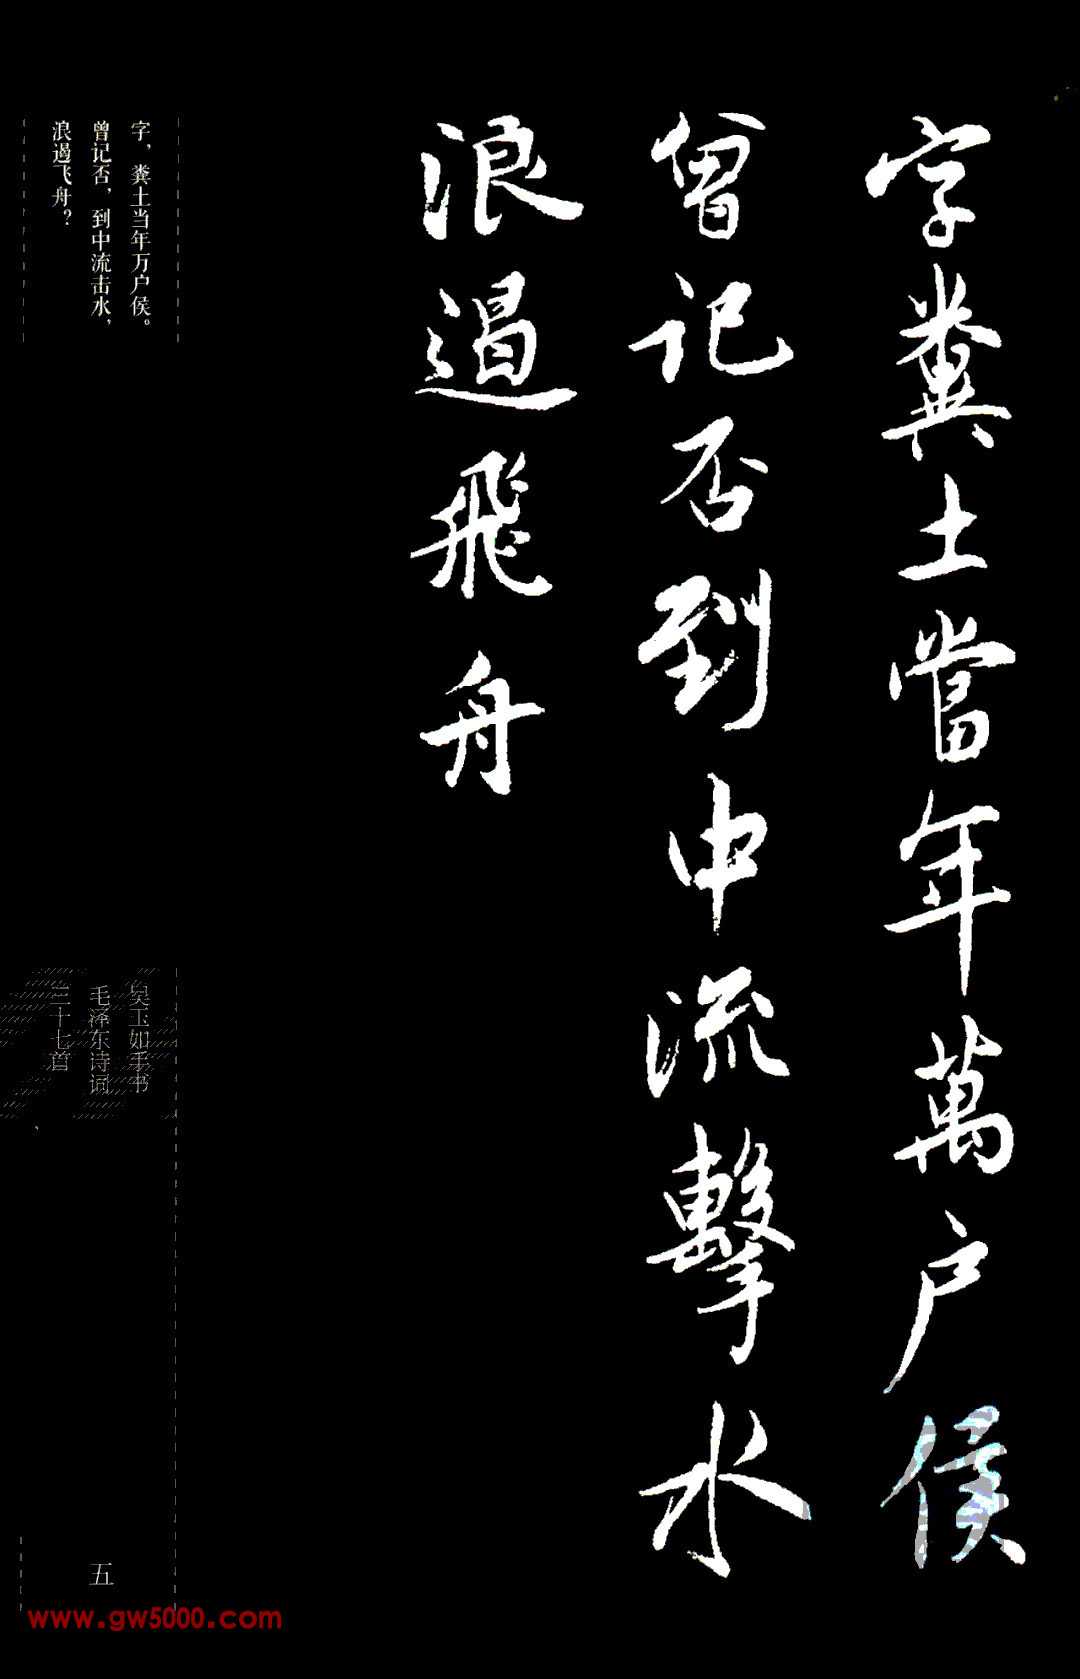 字糞土當年萬户侯
曾记否到中流擊水
浪遏飛舟
字，粪土当年万户侯。
曾记否，到中流击水，
浪遏飞舟？
吴玉如手书
毛泽东诗词
三十七首
五
www.gw5000.com